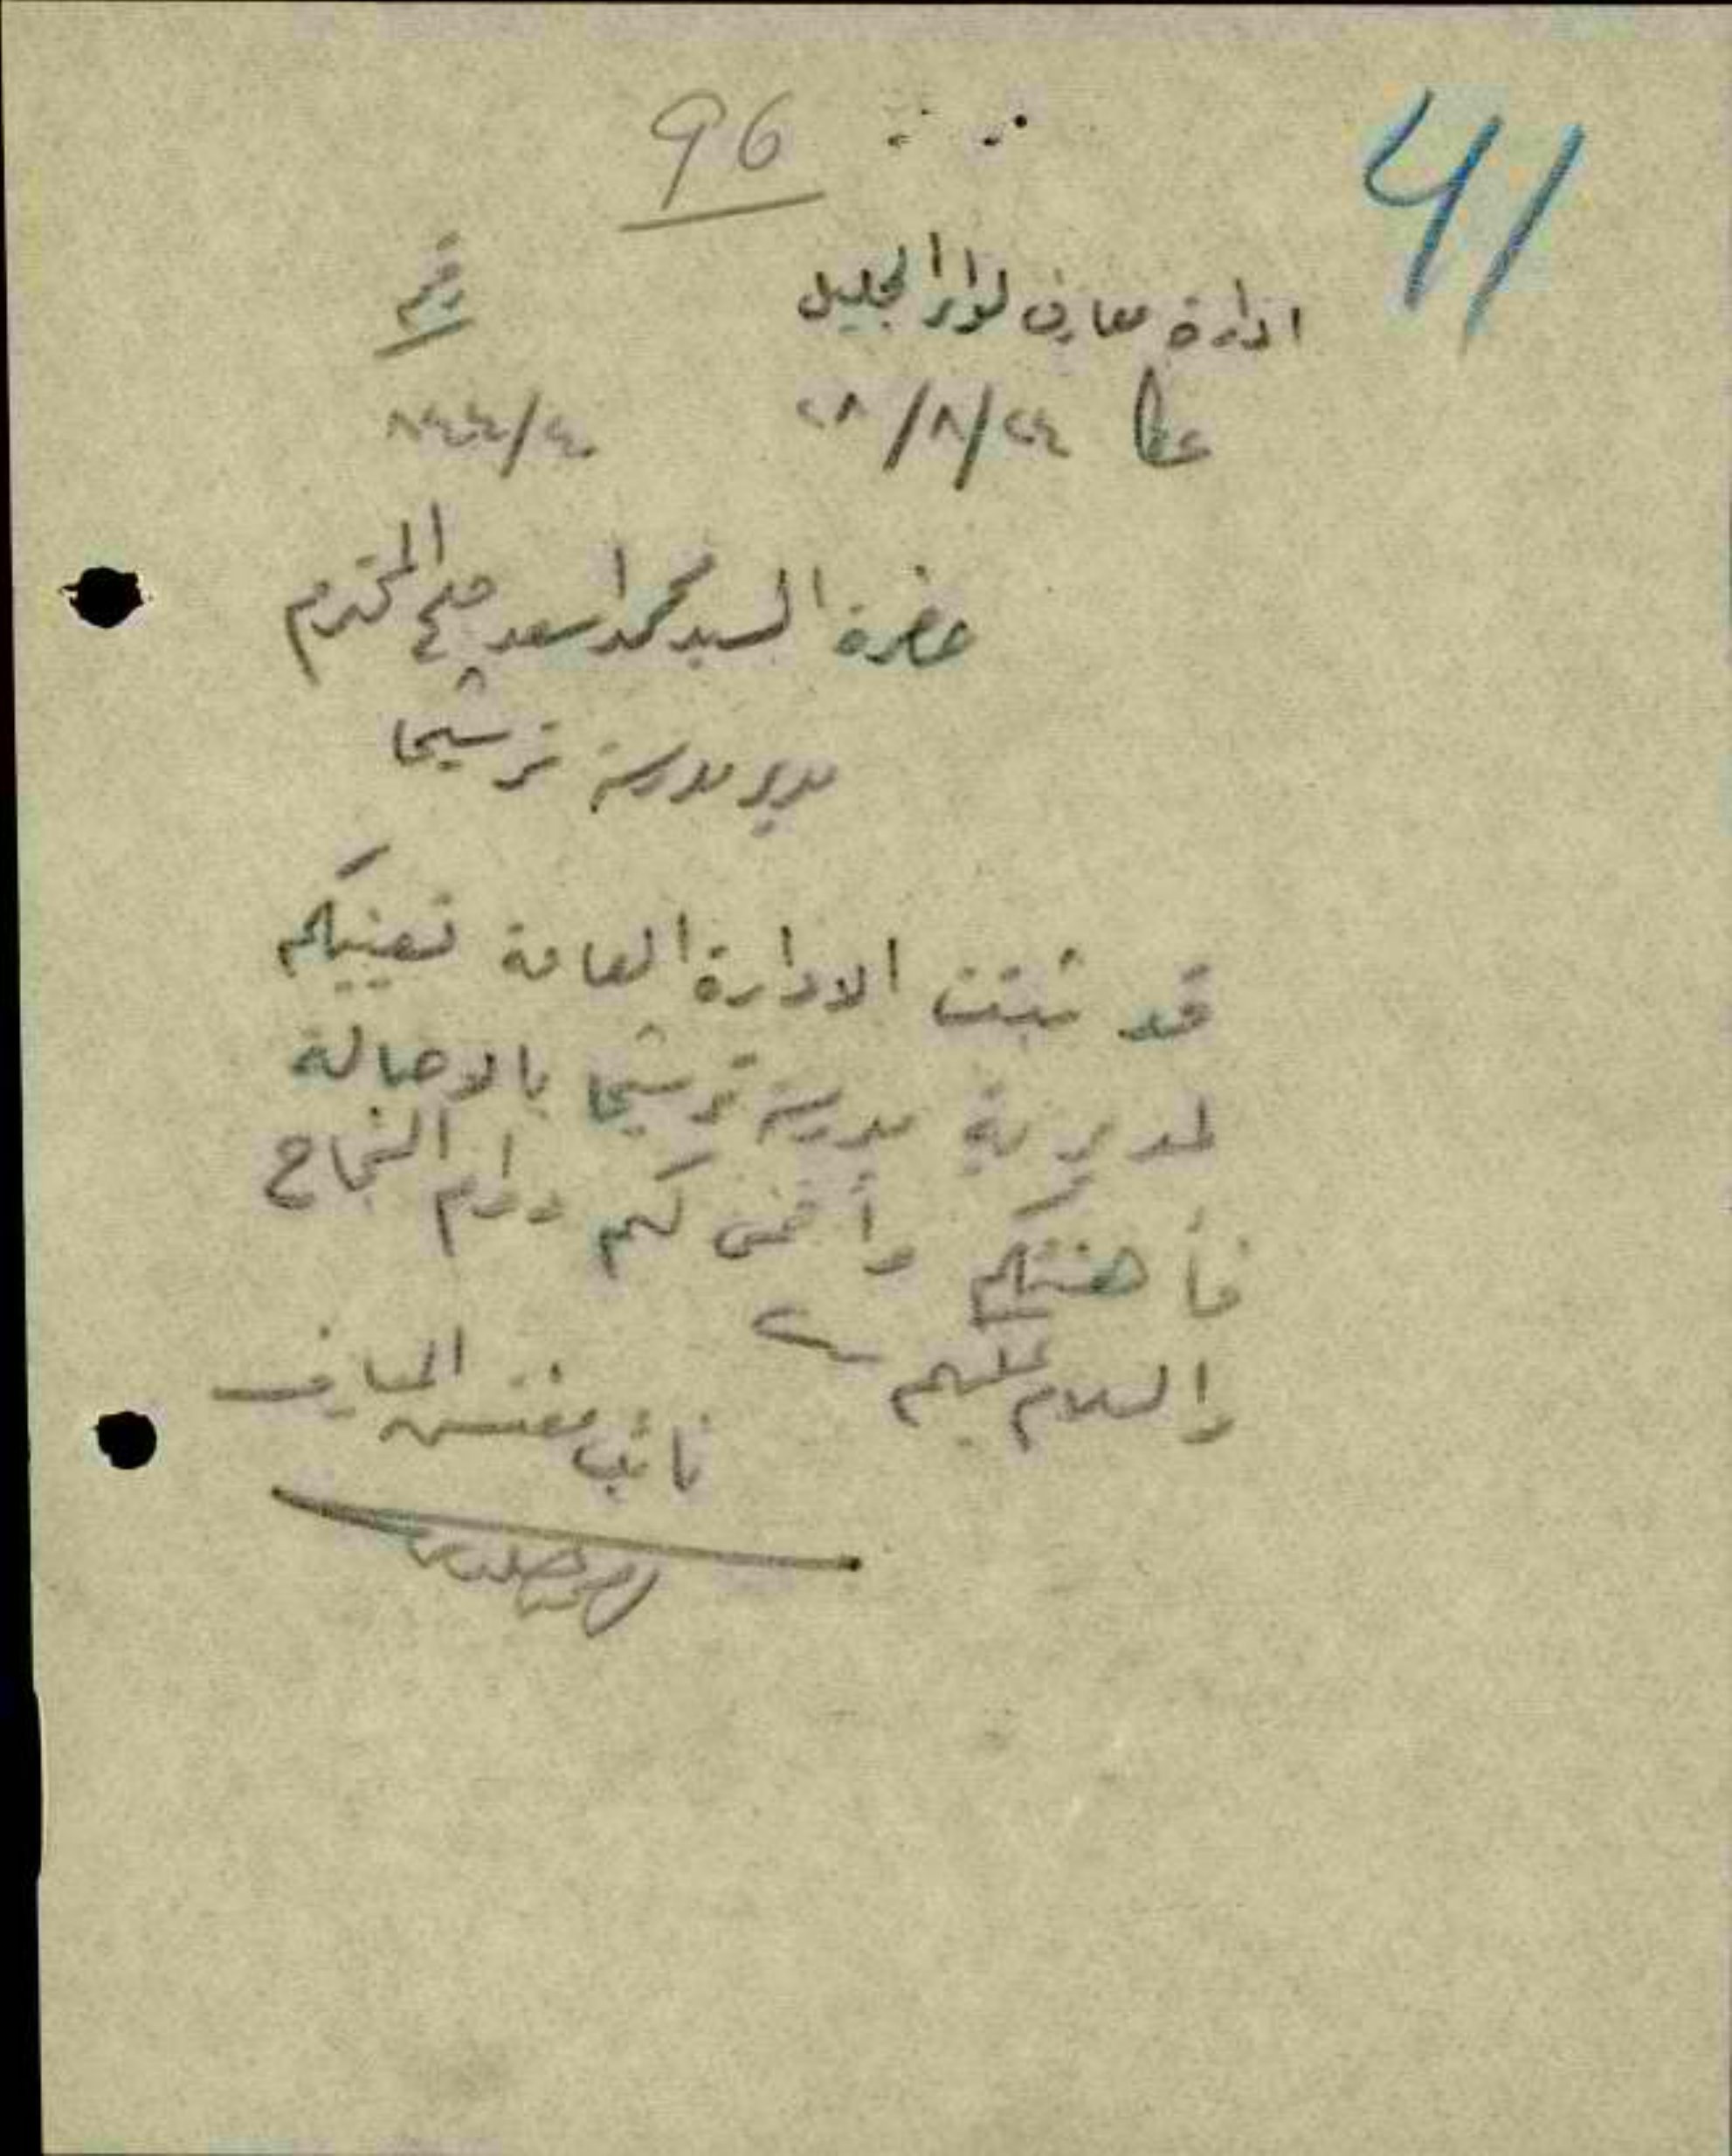 96
41
ادارة معارف لواء الجليل
رقم
عكا ٢٤/٨/٢٨
حضرة السيد محمد اسعد المحترم
مدير مدرسة ترشيحا
قد ثبتت الادارة العامة تعيينكم
لمديرية مدرسة ترشيحا بالاصالة
فأهنئكم وأتمنى لكم دوام النجاح
والسلام عليكم
نائب مفتش المعارف